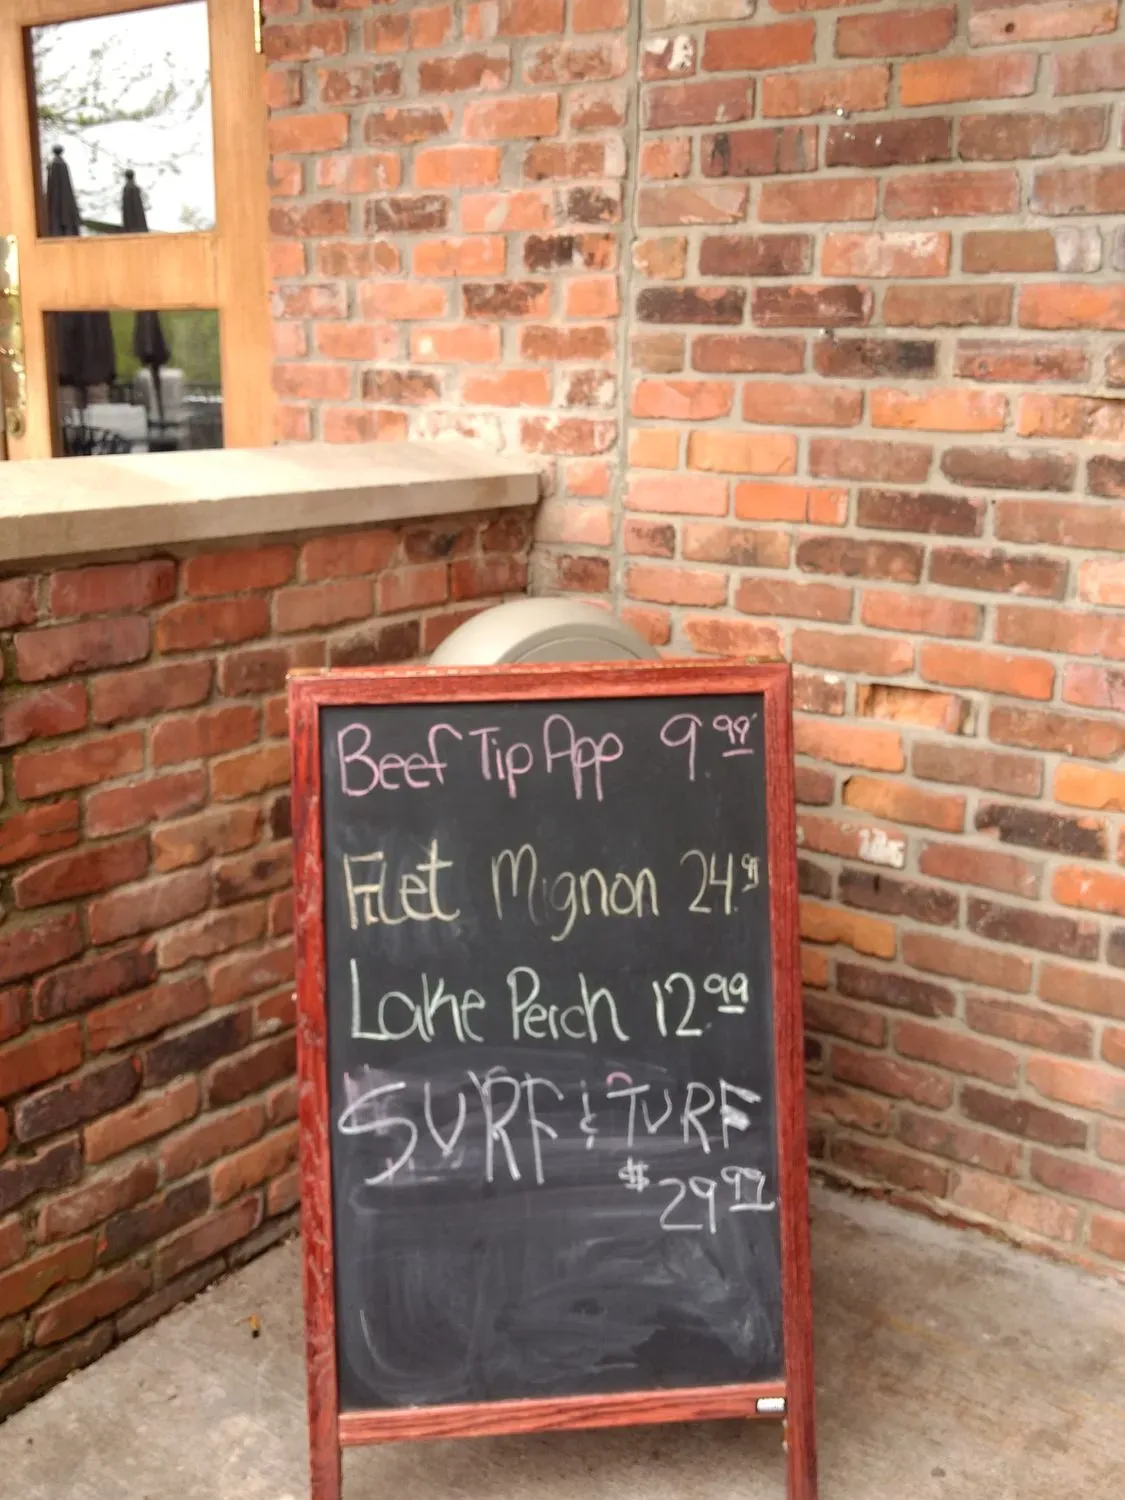 Beef Tip App 9.99
Filet Mignon 24.95
Lake Perch 12.99
SURF & TURF
$29.99